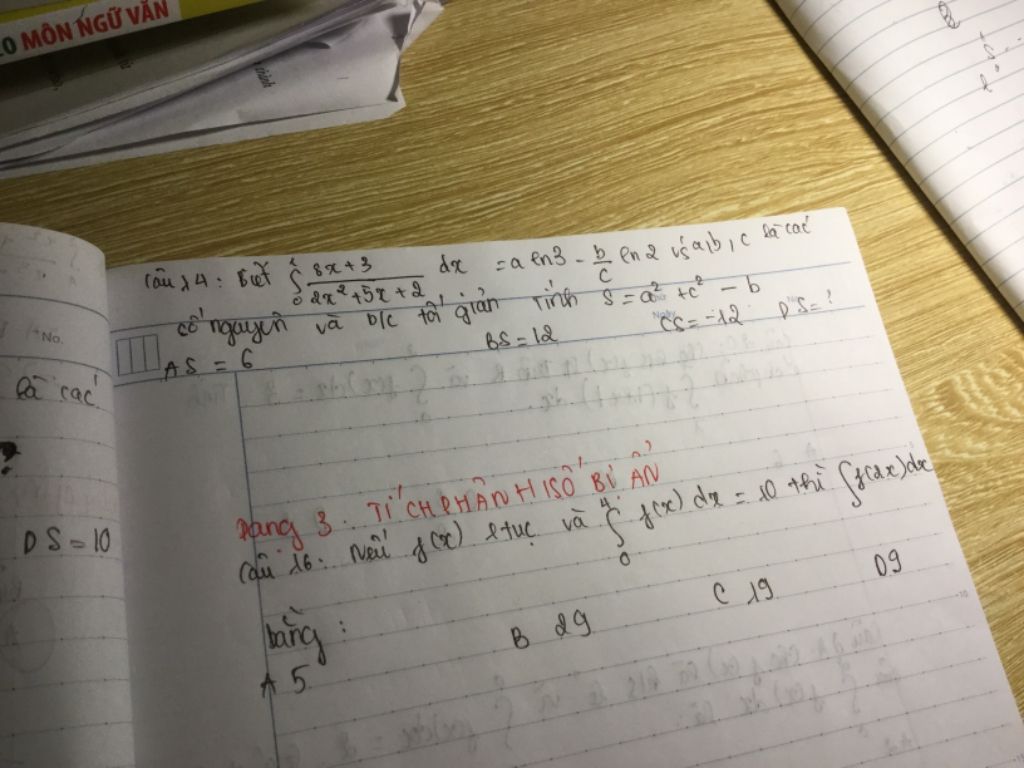 .0 MÔN NGỮ VĂN
Câu 14: Biết ∫ 8x+3 / 2x²+5x+2 dx = a ln3 - b/c ln2 vs a, b, c là các
số nguyên và b/c tối giản Tính S = a² + c² - b
A S = 6 B S = 12 C S = -12 D S = ?
No.
là các
?
D S = 10
Dạng 3. TÍCH PHÂN H SỐ BÍ ẨN
Câu 16. Nếu f(x) ltục và ∫₀⁴ f(x) dx = 10 thì ∫ f(2x) dx
bằng:
A 5 B 29 C 19 D 9